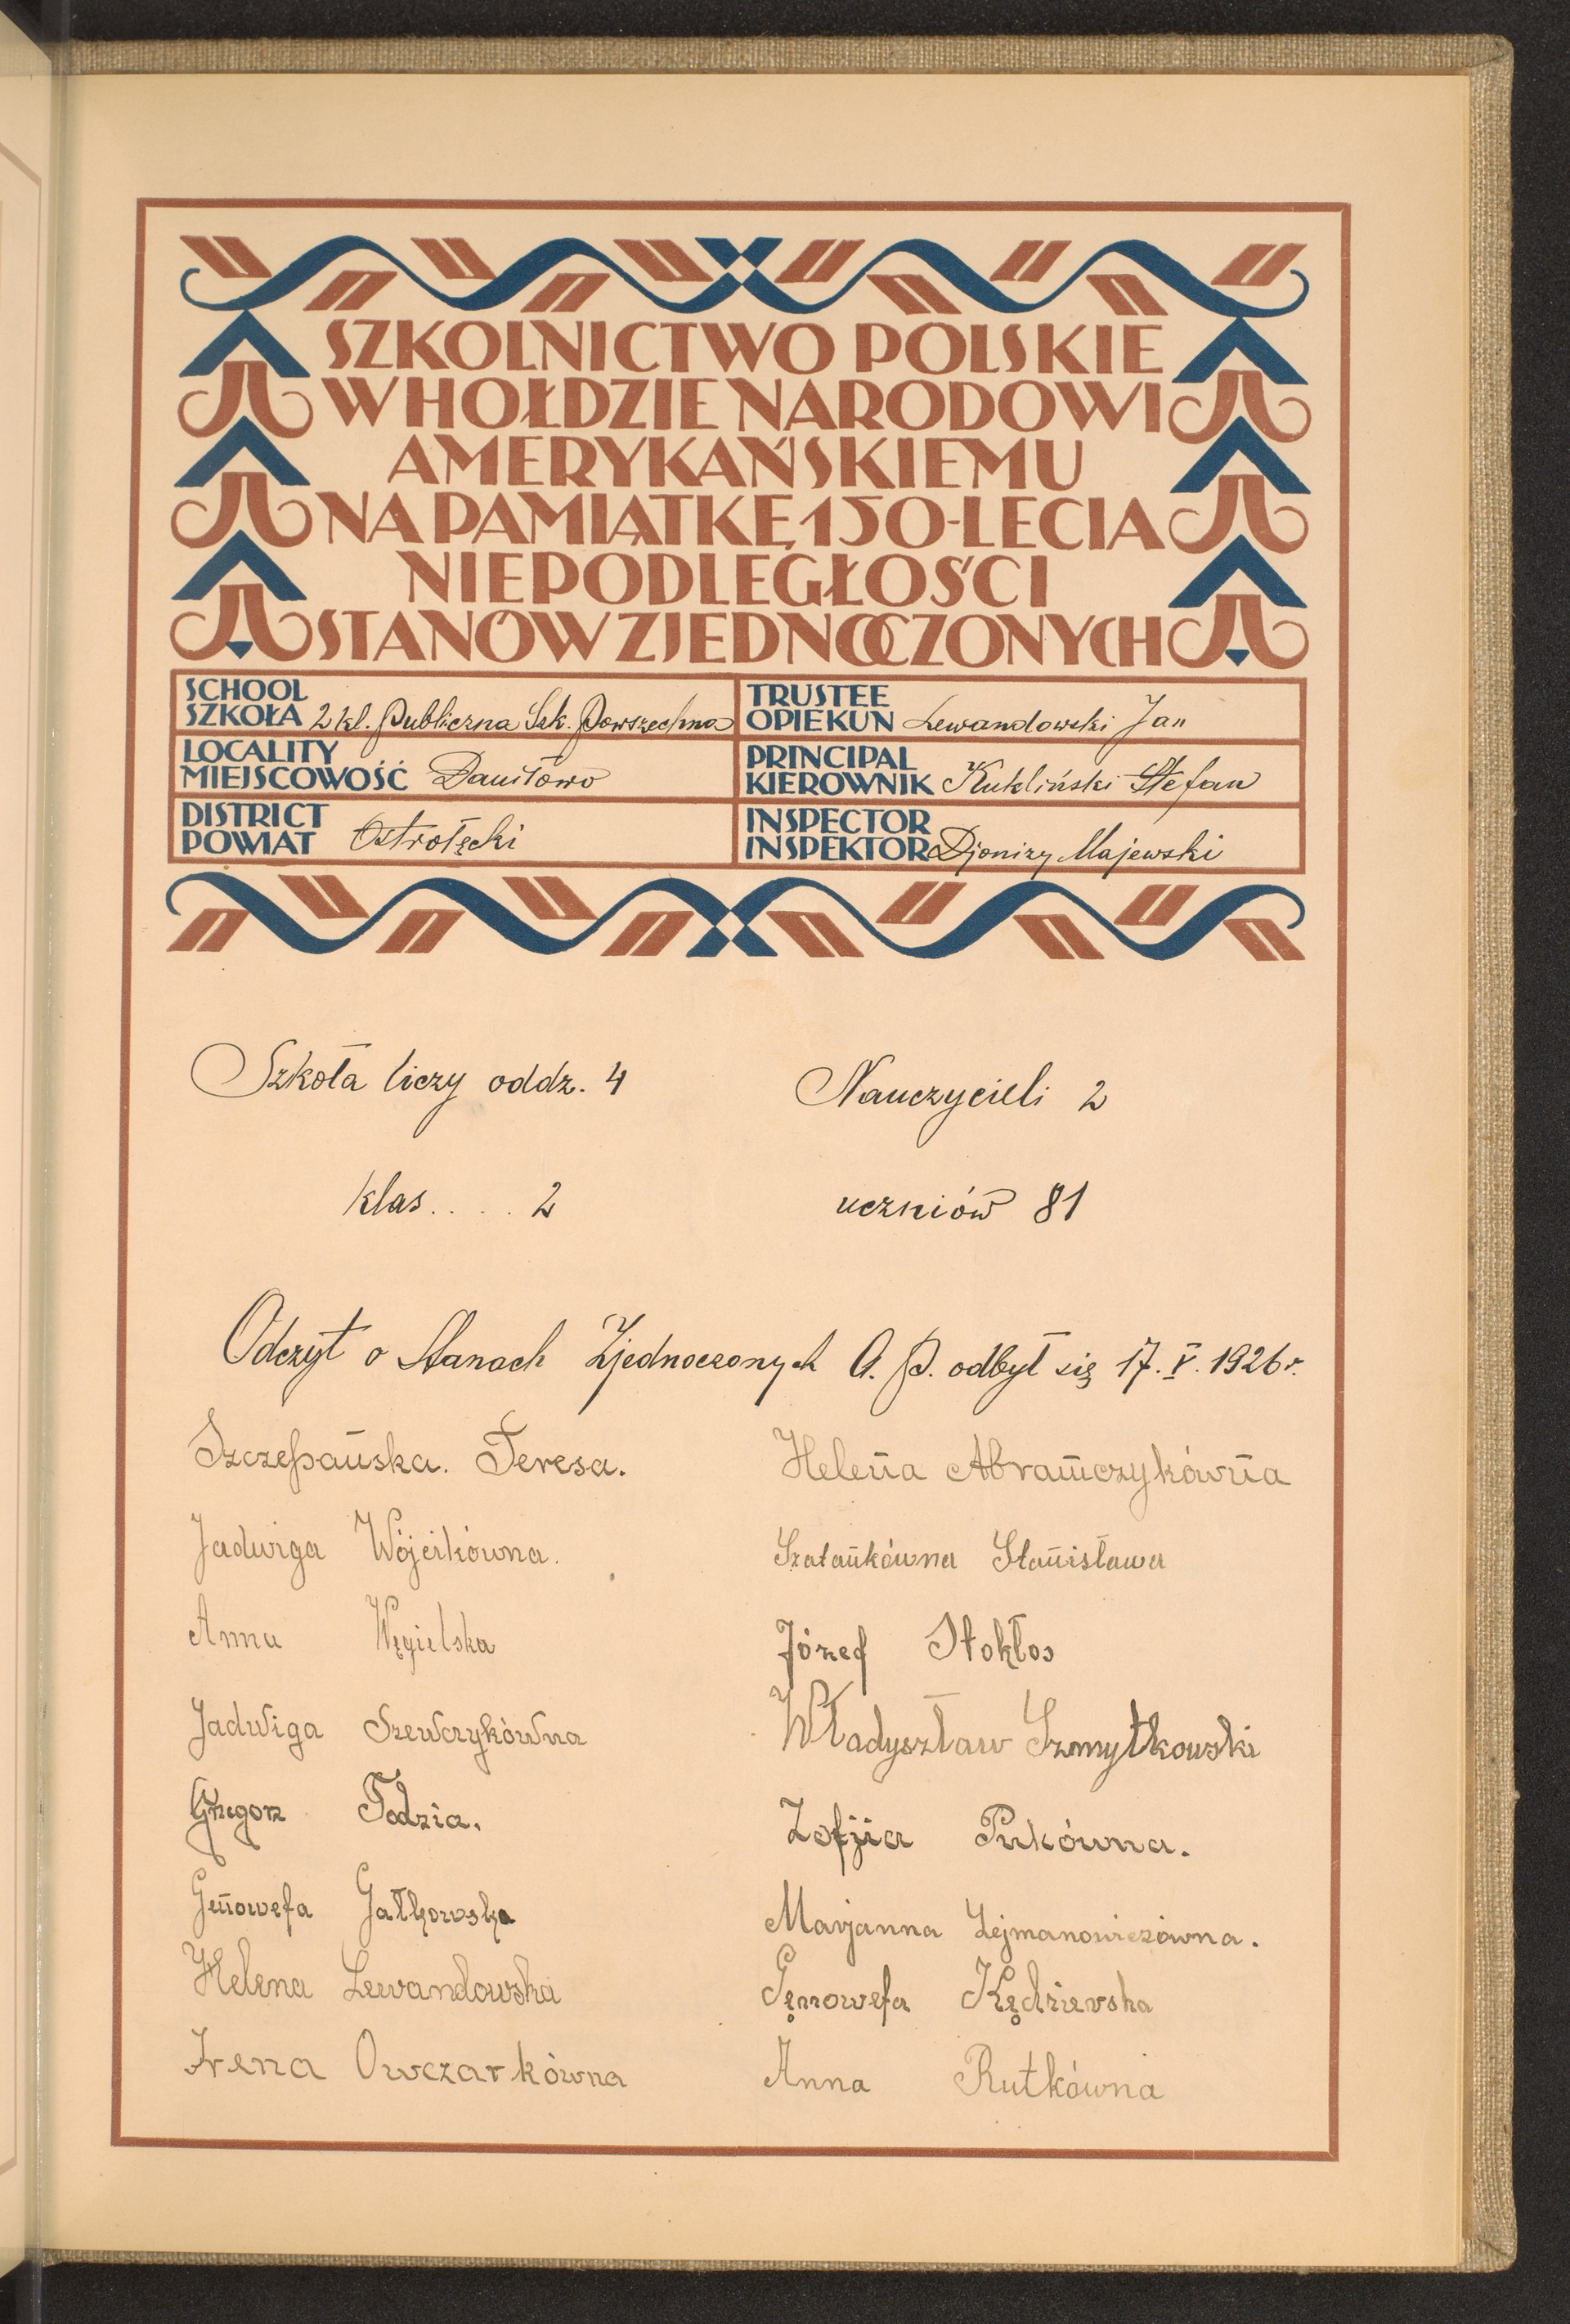 SZKOLNICTWO POLSKIE
W HOŁDZIE NARODOWI
AMERYKAŃSKIEMU
NA PAMIĄTKĘ 150-LECIA
NIEPODLEGŁOŚCI
STANÓW ZJEDNOCZONYCH
SCHOOL
SZKOŁA 2 kl. Publiczna Szk. Powszechna
TRUSTEE
OPIEKUN Lewandowski Jan
LOCALITY
MIEJSCOWOŚĆ Daniłowo
PRINCIPAL
KIEROWNIK Kukliński Stefan
DISTRICT
POWIAT Ostrołęcki
INSPECTOR
INSPEKTOR Djonizy Majewski
Szkoła liczy oddz. 4
Nauczycieli 2
klas . . . . 2
uczniów 81
Odczyt o Stanach Zjednoczonych A. P. odbył się 17. V. 1926 r.
Szczepańska. Teresa.
Helena Abramczykówna
Jadwiga Wójcikówna.
Szatankówna Stanisława
Anna Węgielska
Józef Stokłos
Jadwiga Szewczykówna
Władyszław Szmytkowski
Gregorz Todzia.
Zofjia Pukówna.
Genowefa Gałkowska
Marjanna Zejmanowiczówna.
Helena Lewandowska
Gęnowefa Kędzierska
Irena Owczarkówna
Anna Rutkówna